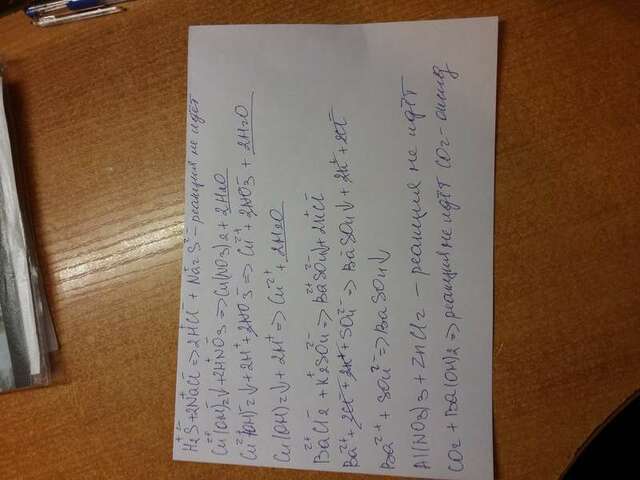 H2S + 2NaCl => 2HCl + Na2S - реакция не идёт
Cu(OH)2↓ + 2HNO3 => Cu(NO3)2 + 2H2O
Cu(OH)2↓ + 2H⁺ + 2NO3⁻ => Cu²⁺ + 2NO3⁻ + 2H2O
Cu(OH)2↓ + 2H⁺ => Cu²⁺ + 2H2O
BaCl2 + K2SO4 => BaSO4↓ + 2KCl
Ba²⁺ + 2Cl⁻ + 2K⁺ + SO4²⁻ => BaSO4↓ + 2K⁺ + 2Cl⁻
Ba²⁺ + SO4²⁻ => BaSO4↓
Al(NO3)3 + ZnCl2 - реакция не идёт
CO2 + Ba(OH)2 => реакция не идёт CO2 - оксид